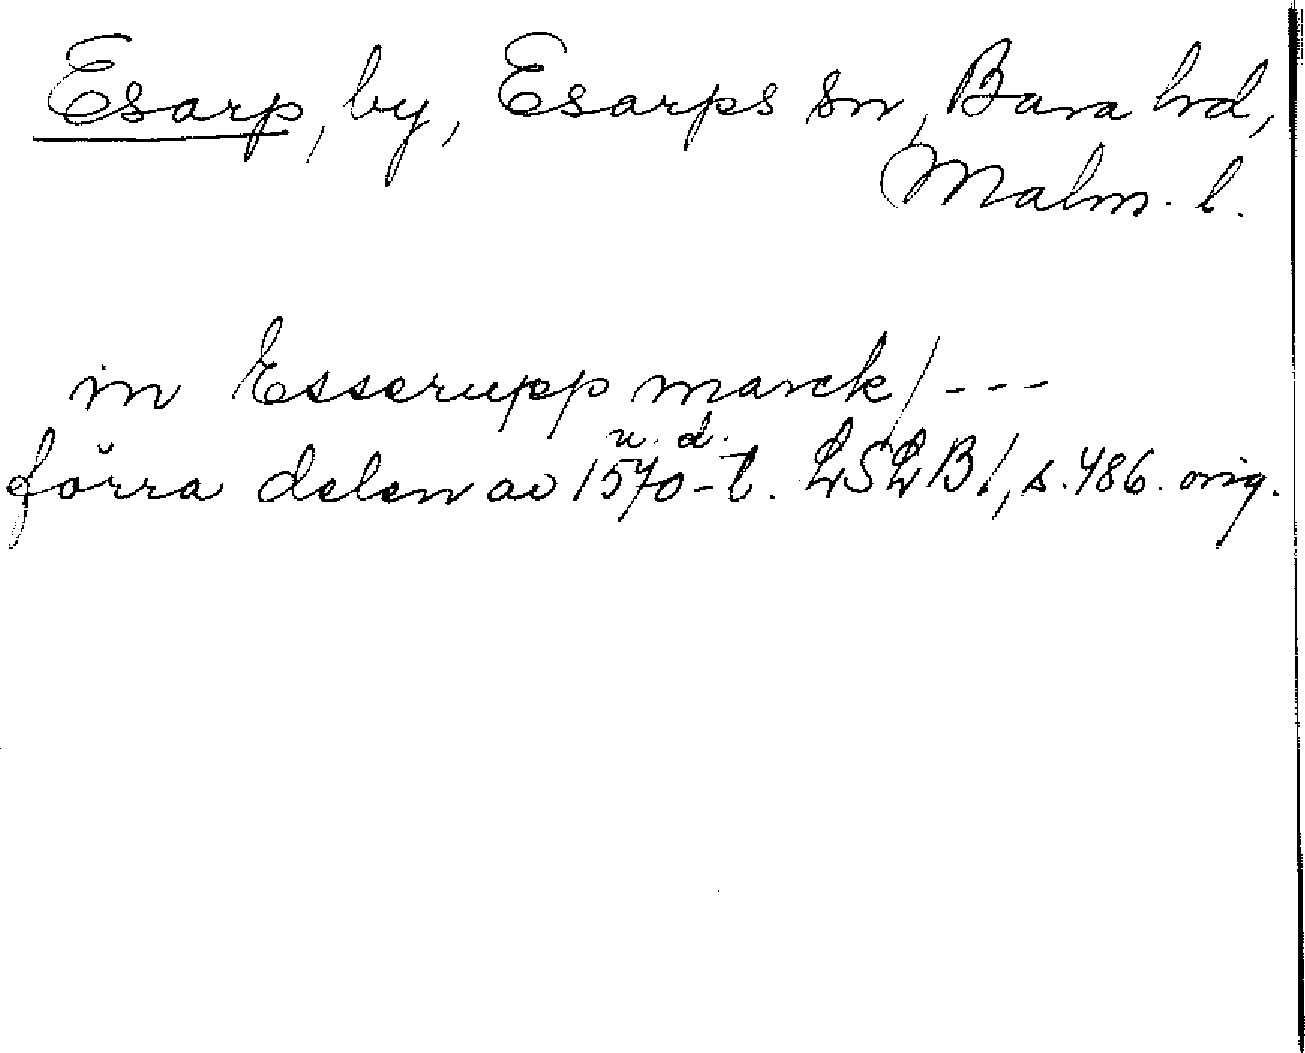 Esarp, by, Esarps sn, Bara hd,
Malm. l.
in Esserupp marck/ ---
u. d.
förra delen av 1570-t. LSLB1, s. 486. orig.